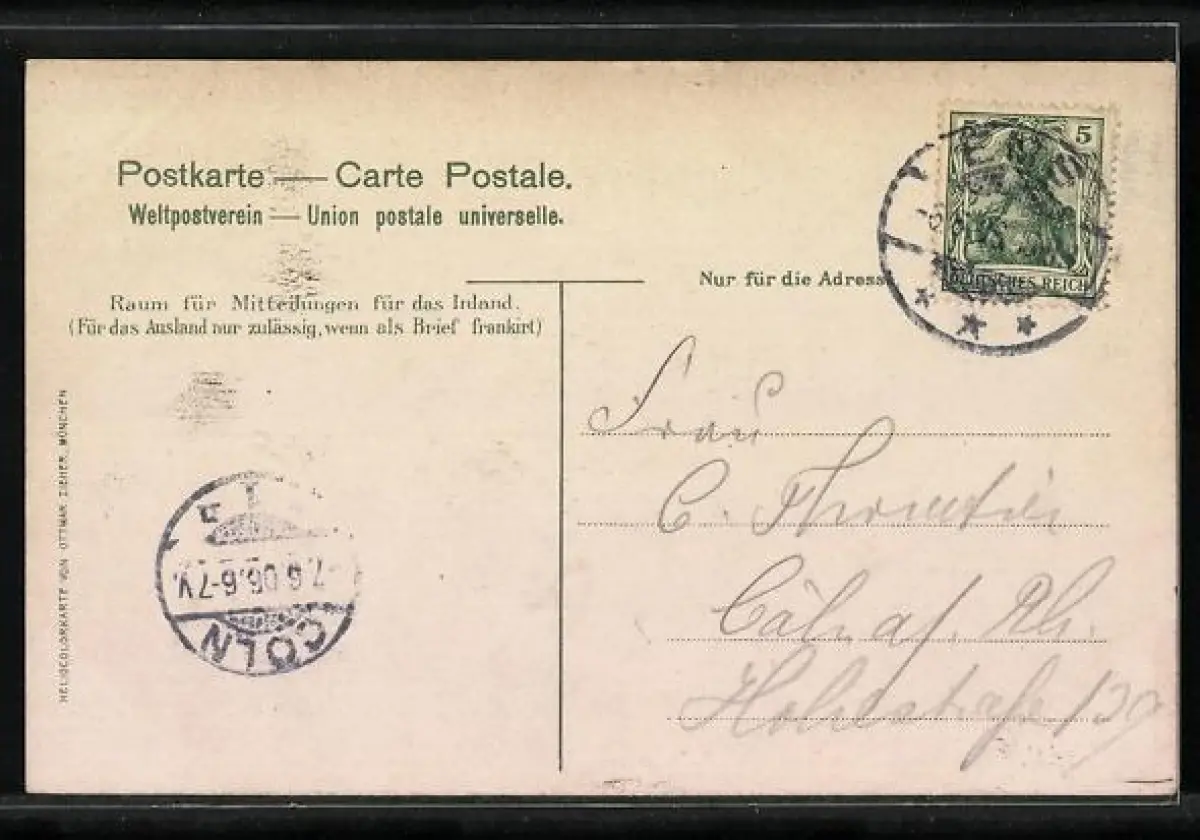 Postkarte — Carte Postale.
Weltpostverein — Union postale universelle.
Nur für die Adress
Raum für Mitteilungen für das Inland.
(Für das Ausland nur zulässig, wenn als Brief frankirt)
5 5
DEUTSCHES REICH
Frau
C.
Cöln a/. Rh.
Hohestraße 139
CÖLN
7.6.06.6-7V.
HELIOCOLORKARTE VON OTTMAR ZIEHER, MÜNCHEN